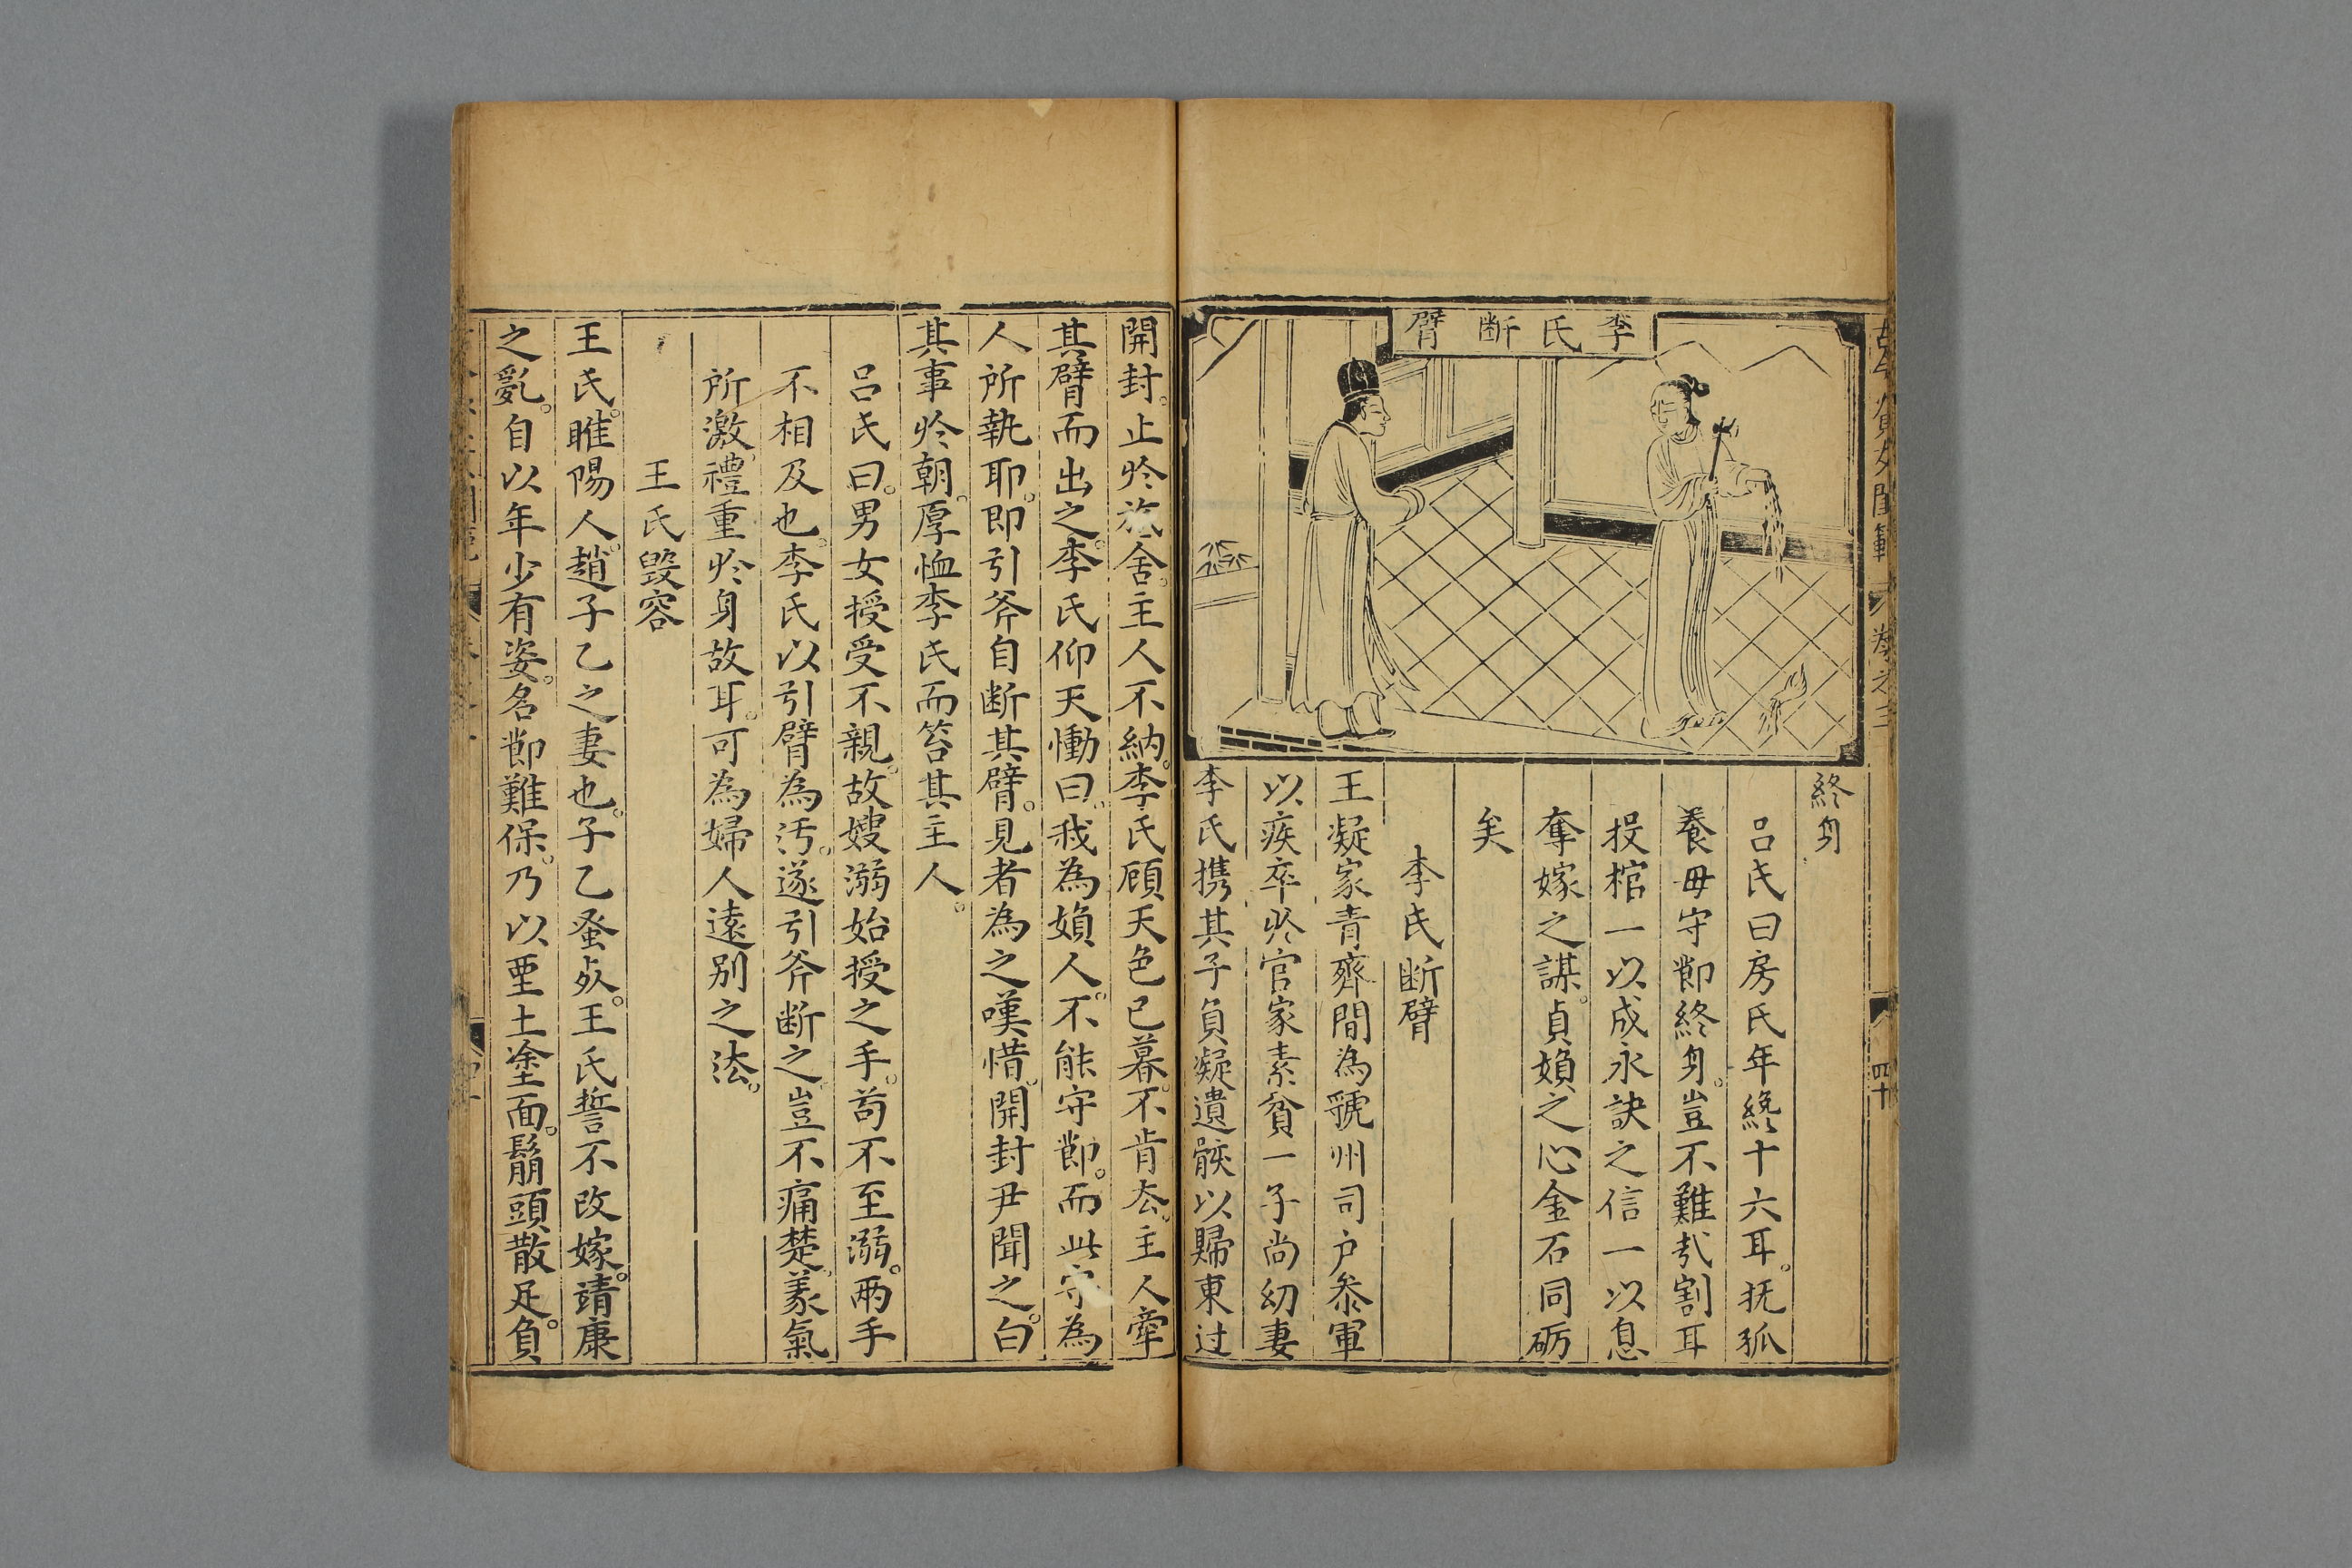 古今貞女閨範
卷之三
四十
李氏断臂
終身
呂氏曰房氏年終十六耳。抚孤
養毋守節終身。豈不難㢤割耳
投棺一以成永訣之信一以息
奪嫁之謀。貞媍之心金石同砺
矣
李氏断臂
王凝家青齊間為虢州司户叅軍
以疾卒扵官家素貧一子尚幼妻
李氏携其子負凝遺骸以歸東过
開封。止扵旅舍。主人不納。李氏顧天色已暮。不肯去。主人牽
其臂而出之。李氏仰天慟曰。我為媍人。不能守節。而此守為
人所執耶。即引斧自断其臂。見者為之嘆惜。開封尹聞之。白
其事扵朝。厚恤李氏而笞其主人。
呂氏曰。男女授受不親。故嫂溺始授之手。苟不至溺。兩手
不相及也。李氏以引臂為汚。遂引斧断之。豈不痛楚。義氣
所激。禮重扵身故耳。可為婦人遠别之法。
王氏毀容
王氏。睢陽人。趙子乙之妻也。子乙蚤夨。王氏誓不改嫁。靖康
之亂。自以年少有姿。名節難保。乃以堊土塗面。鬅頭散足。負